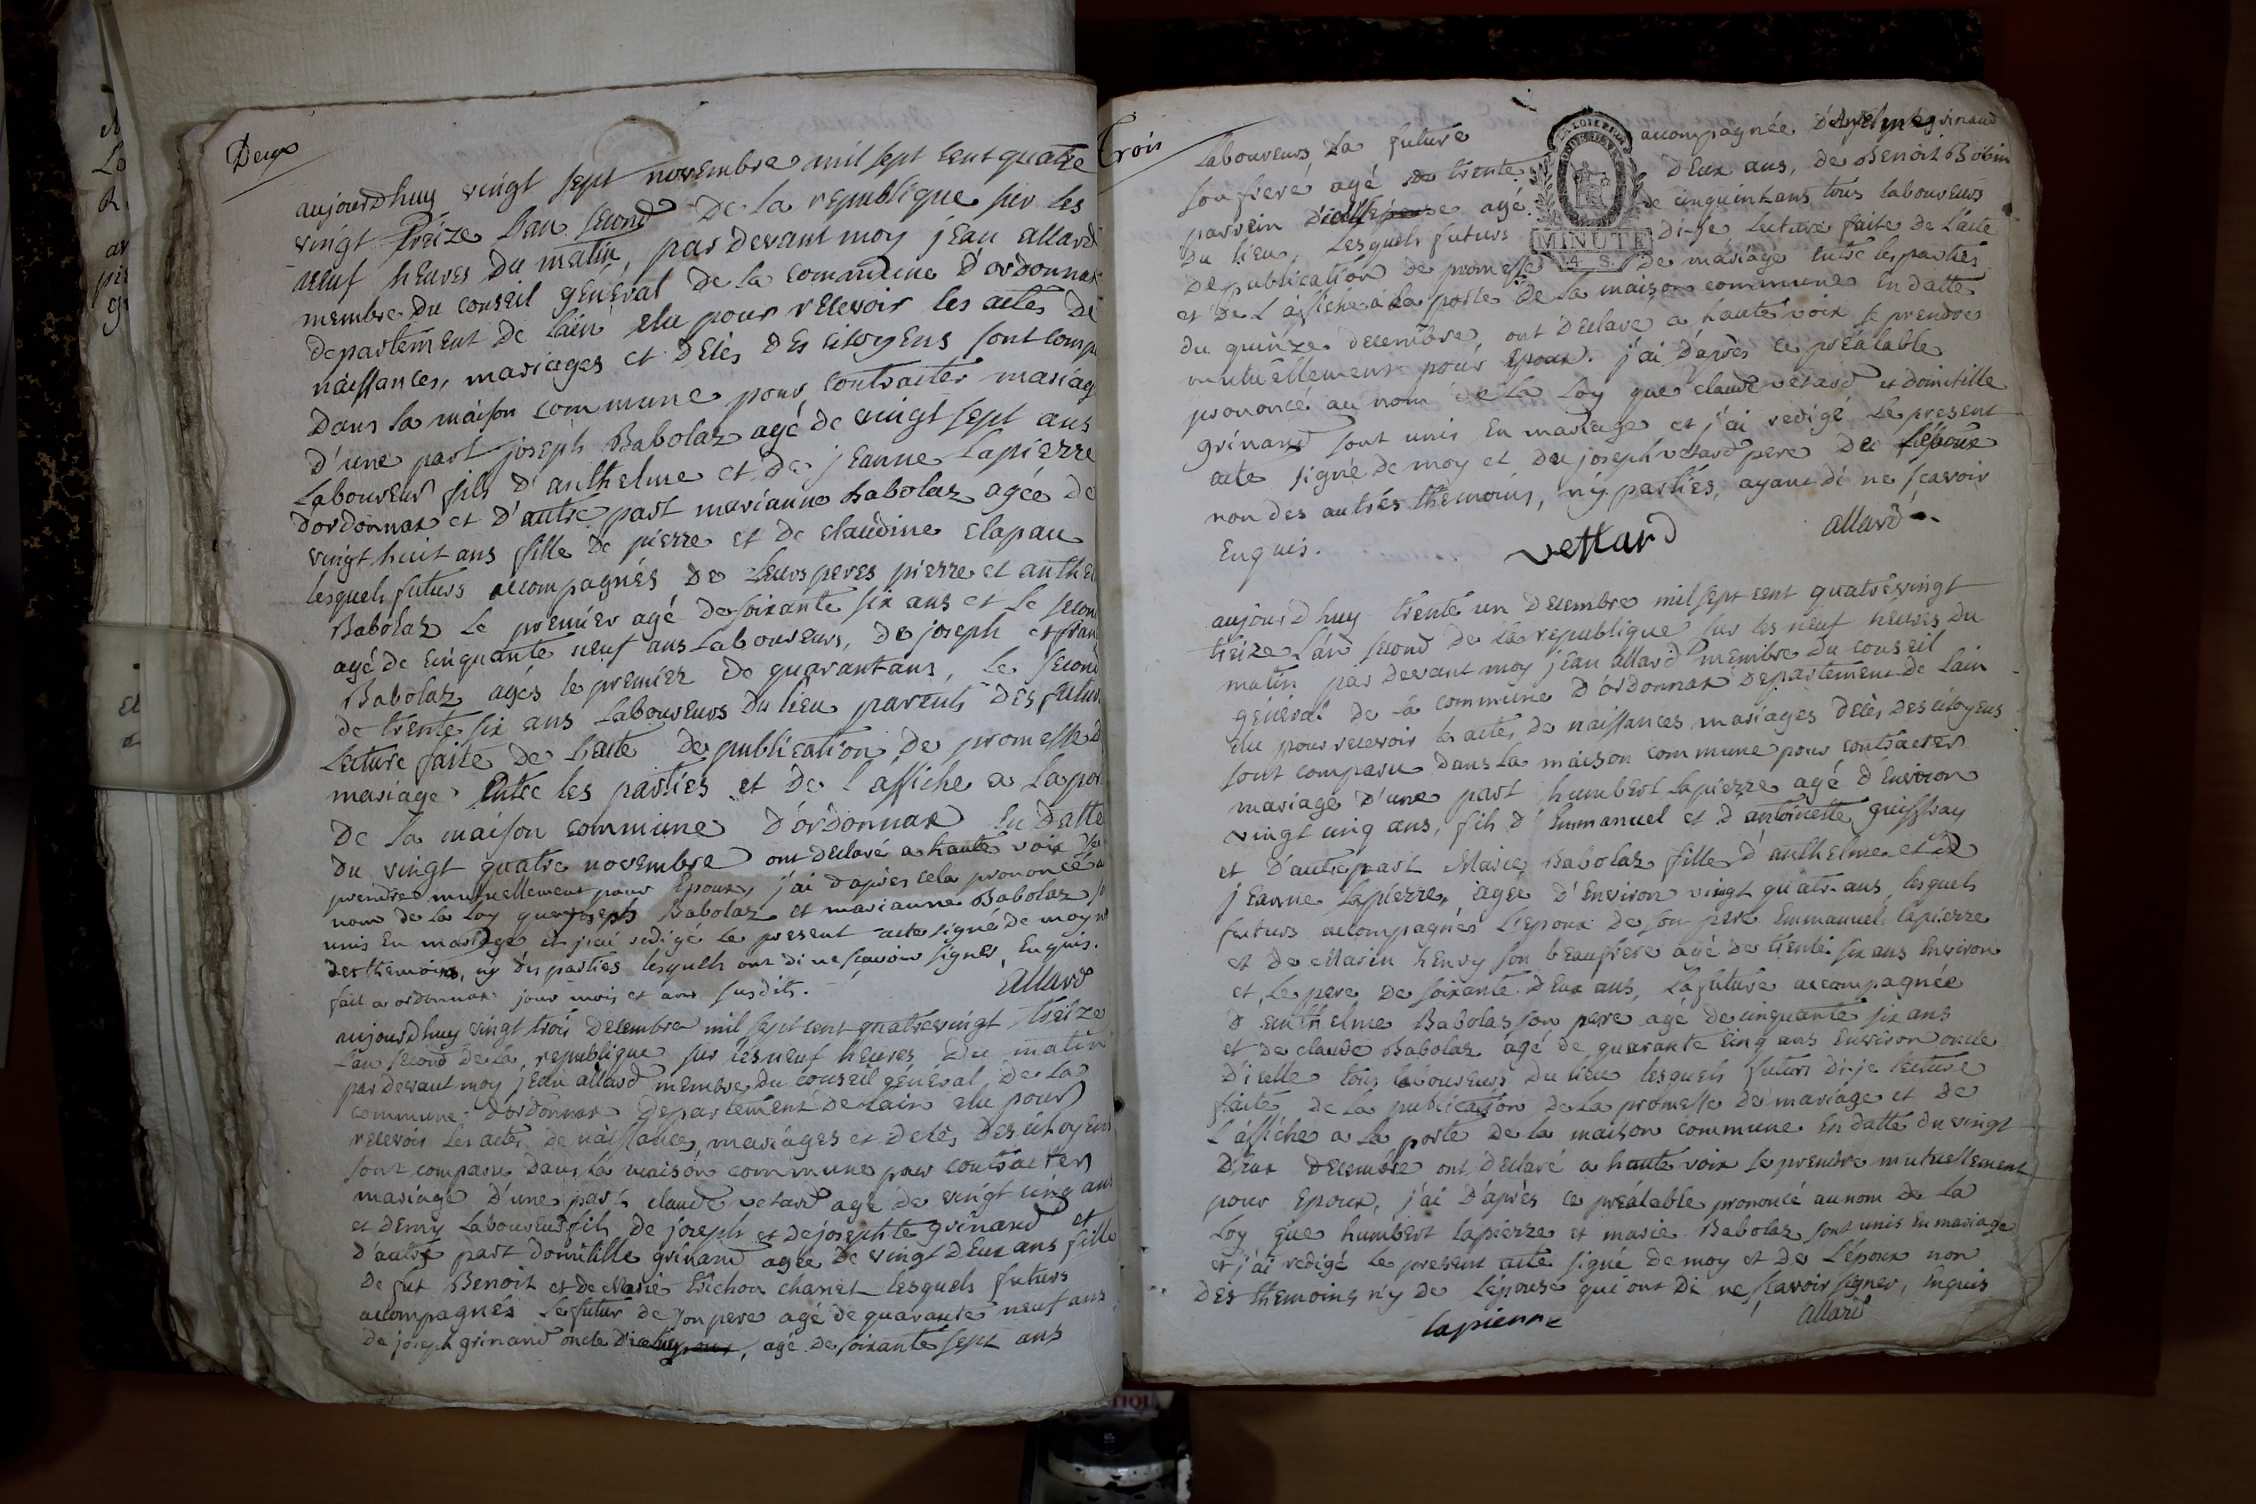 Deux
aujourdhuy vingt sept novembre mil sept cent quatre
vingt treize l'an second De la republique sur les
neuf heures Du matin, par Devant moy jean allard
membre Du conseil général De la commune D'ordonnax
Departement De Lain elu pour recevoir les actes De
naissances, mariages et Décès Des citoyens sont comp
Dans la maison commune pour contracter mariag
D'une part joseph Babolaz agé de vingt sept ans
Laboureur fils D'anthelme et De jeanne Lapierre
Dordonnax et D'autre part marianne babolaz agée De
vingt huit ans fille De pierre et De claudine clapau
lesquels futurs accompagnés De Leurs peres pierre et anthel
Babolaz Le premier agé De soixante six ans et Le secon
agé De cinquante neuf ans Laboureurs, De joseph et fran
Babolaz agés le premier De quarant ans, Le second
De trente six ans Laboureurs Du lieu parents Des futur
Lecture faite De L'acte De publication De promesse D
mariage Entre les parties et De l'affiche a La por
De la maison commune D'ordonnax En Datte
Du vingt quatre novembre ont Declaré a haute voix se
prendre mutuellement pour Epoux, j'ai D'après cela prononcé a
nom De La Loy que joseph Babolaz et marianne Babolaz so
unis En mariage et j'ai redigé Le present acte signé De moy n
Des themoins, ny Des parties lesquels ont Di ne sçavoir signer, Enquis.
fait a ordonnax jour mois et an susdits.
allard
aujourdhuy vingt trois Decembre mil sept cent quatrevingt treize
L'an second De La republique sur les neuf heures Du matin
par Devant moy jean allard membre Du conseil général De La
commune D'ordonnax Departement De Lain elu pour
recevoir Les actes De naissances, mariages et Decès Des citoyens
sont comparu Dans La maison commune pour contracter
mariage D'une part claude vetard agé De vingt cinq ans
et Demy Laboureur fils De joseph et De josephte grinand et
D'autre part Domitille grinand agée De vingt Deux ans fille
De fut Benoit et De Marie trichon chanet Lesquels futurs
accompagnés Le futur De son pere agé De quarante neuf ans
De joseph grinand oncle D'icelluy, agé De soixante sept ans
Trois
Laboureurs La future accompagnée D'anthelme grinand
son freré agé De trente Deux ans, De Benoit Bobin
parrein D'icelle agé De cinquint ans tous laboureurs
Du lieu, Lesquels futurs Di-je Lecture faite De L'acte
De publication De promesse De mariage Entre les parties
et De L'affiche a La porte De La maison commune En Datte
Du quinze Decembre, ont Declaré a haute voix se prendre
mutuellement pour Epoux. j'ai D'après ce préalable
prononcé au nom De La Loy que claude vetard et Domitille
grinand sont unis En mariage et j'ai redigé Le present
acte signé De moy et De joseph vetard pere De L'Epoux
non Des autres themoins, n'y parties, ayant Di ne sçavoir
Enquis.
vettard allard
MINUTE
4 S.
aujourdhuy trente un Decembre mil sept cent quatrevingt
treize L'an second De La republique sur les neuf heures Du
matin par Devant moy jean allard membre Du conseil
général De La commune D'ordonnax Departement De Lain
elu pour recevoir les actes, De naissances mariages Decès, Des citoyens
sont comparu Dans La maison commune pour contracter
mariage D'une part humbert Lapierre agé D'Environ
vingt cinq ans, fils D'Emmanuel et D'antoinette
et D'autre part Marie Babolaz fille D'anthelme et De
jeanne Lapierre, agée D'Environ vingt quatre ans, lesquels
futurs accompagnés L'Epoux De son pere Emmanuel Lapierre
et De Marin henry son beaufrere agé De trente six ans Environ
et, Le pere De soixante Deux ans, La future accompagnée
D'anthelme Babolaz son pere agé De cinquante six ans
et De claude Babolaz agé De quarante cinq ans Environ oncle
D'icelle tous laboureurs Du lieu lesquels futurs Di-je lecture
faite De La publication De La promesse De mariage et De
L'affiche a La porte De La maison commune En Datte Du vingt
Deux Decembre ont Declaré a haute voix se prendre mutuellement
pour Epoux, j'ai D'après ce préalable prononcé au nom De La
Loy que humbert Lapierre et marie Babolaz sont unis En mariage
et j'ai redigé Le present acte signé De moy et De L'époux non
Des themoins n'y De L'épouse qui ont Di ne sçavoir signer, Enquis
lapierre allard